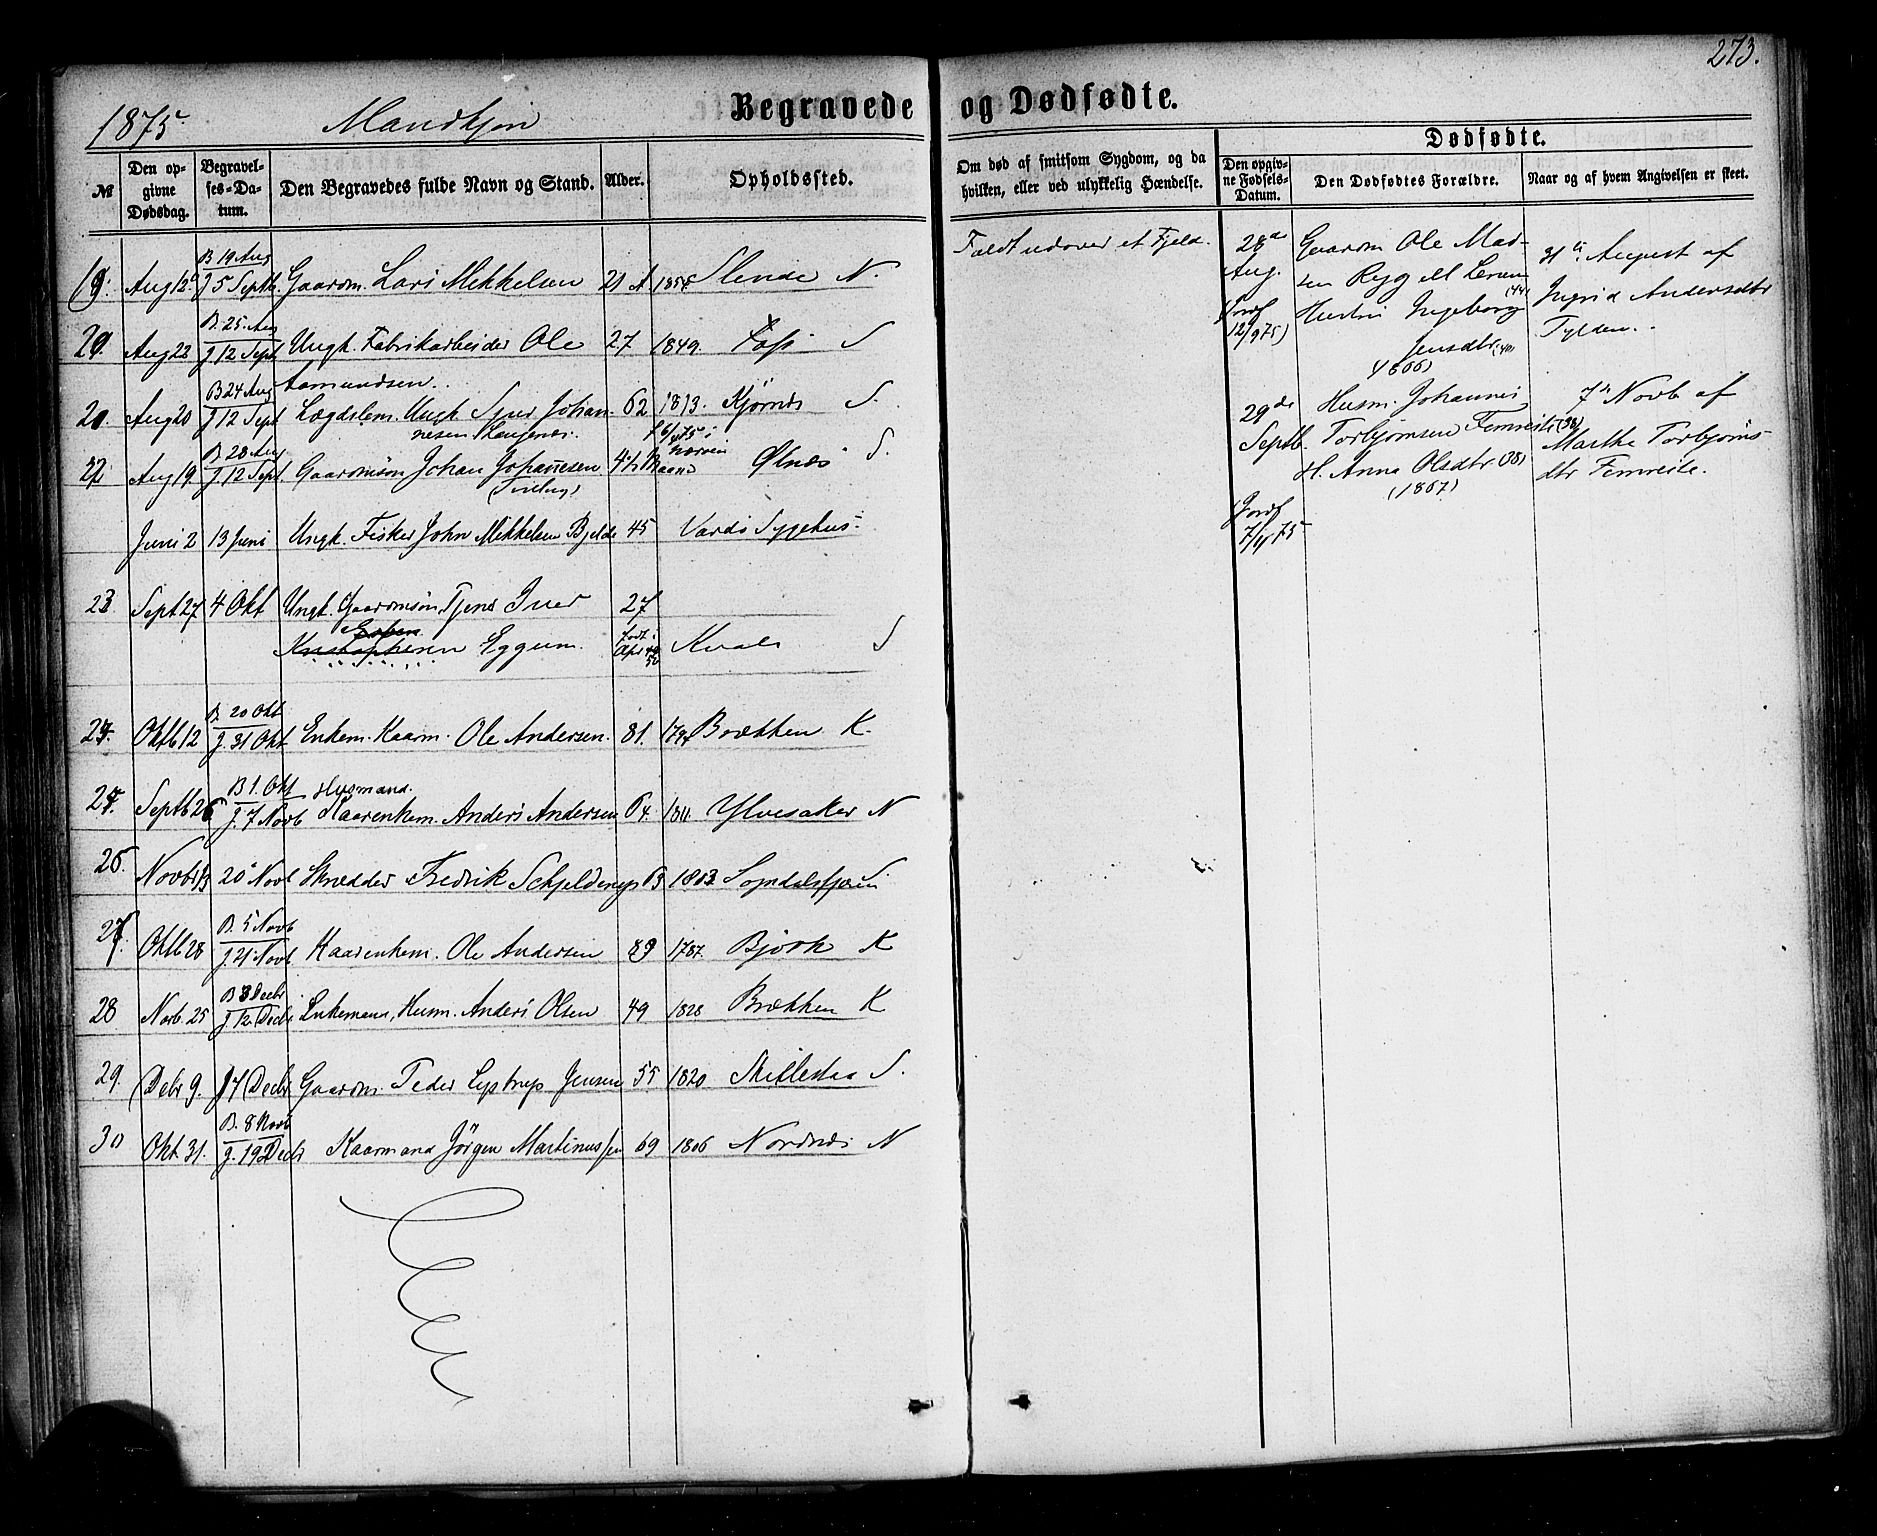 273.
1875 Mandkjøn Begravede og Dødfødte.
№
Den opgivne Dødsdag.
Begravelses-Datum.
Den Begravedes fulde Navn og Stand.
Alder.
Opholdssted.
Om død af smitsom Sygdom, og da hvilken, eller ved ulykkelig Hændelse.
Dødfødte.
Den opgivne Fødsels-Datum.
Den Dødfødtes Forældre.
Naar og af hvem Angivelsen er skeet.
B 19 Aug
19. Aug 12 J 5 Septb. Gaardm. Lars Mikkelsen 21 A 1854 Slinde N. Faldt udover et Fjeld.
B. 25 Aug
20. Aug 22 J 12 Sept. Ungk. Fabrikarbeider Ole 27 1849. S
Aamundsen.
B 24 Aug
21. Aug 20 J 12 Sept Lægdslem. Ungk Iver Johan- 62 1813. Kjørnes S.
nesen
B. 28 Aug
22 Aug 19 J 12 Sept. Gaardmsøn Johan Johanesen Ølnæs S.
Juni 2 13 Juni Ungk. Fisker John Mikkelsen Bjelde 45 Vardø Sygehus.
23 Sept 27 4 Okt Ungk. Gaardmsøn, Tjener Iver 27
Kristophersen Eggum. født i Apr Kvale S
B. 20 Okt
24. Oktb 12 J. 31 Okt Enkem. Kaarm. Ole Andersen. 81. 1794 Brækken K.
B 1. Okt Husmand.
25. Septb 26 J. 7 Novb Kaarenkem. Anders Andersen 64. 1811. Ylvesaker N
26. Novb 13 20 Novb Skrædder Fredrik Schjelderup 1803 Sogndalsfjæren S
B. 5 Novb
27. Oktb 28 J. 21 Novb Kaarenkem. Ole Andersen 89 1787. Bjørk K
B 3 Decbr
28 Novb. 25 J 12. Decbr Enkemand, Husm. Anders Olsen 49 1828 Brækken K
29. Debr 9. 17 Decbr Gaardm. Peder Lystrup Jensen 55 1820 Skillestaa S.
B. 8 Novb
30 Okt 31. J. 19 Decbr Kaarmand Jørgen Martinussen 69 1806 Nordnæs N
28de Aug. Jordf 12/9 75)
Gaardm Ole Mad-
sen Rygg
Hustru Ingeborg (44)
Jensdtr (40)
(1866)
31te August af
Ingrid Andersdtr
Tylden.
29de Septb. Jordf 7/11 75
Husm. Johannes
Torbjørnsen Fimreite (38)
H. Anna Olsdtr (38)
(1867)
7de Novb af
Marthe Torbjørns-
dtr Fimreite.